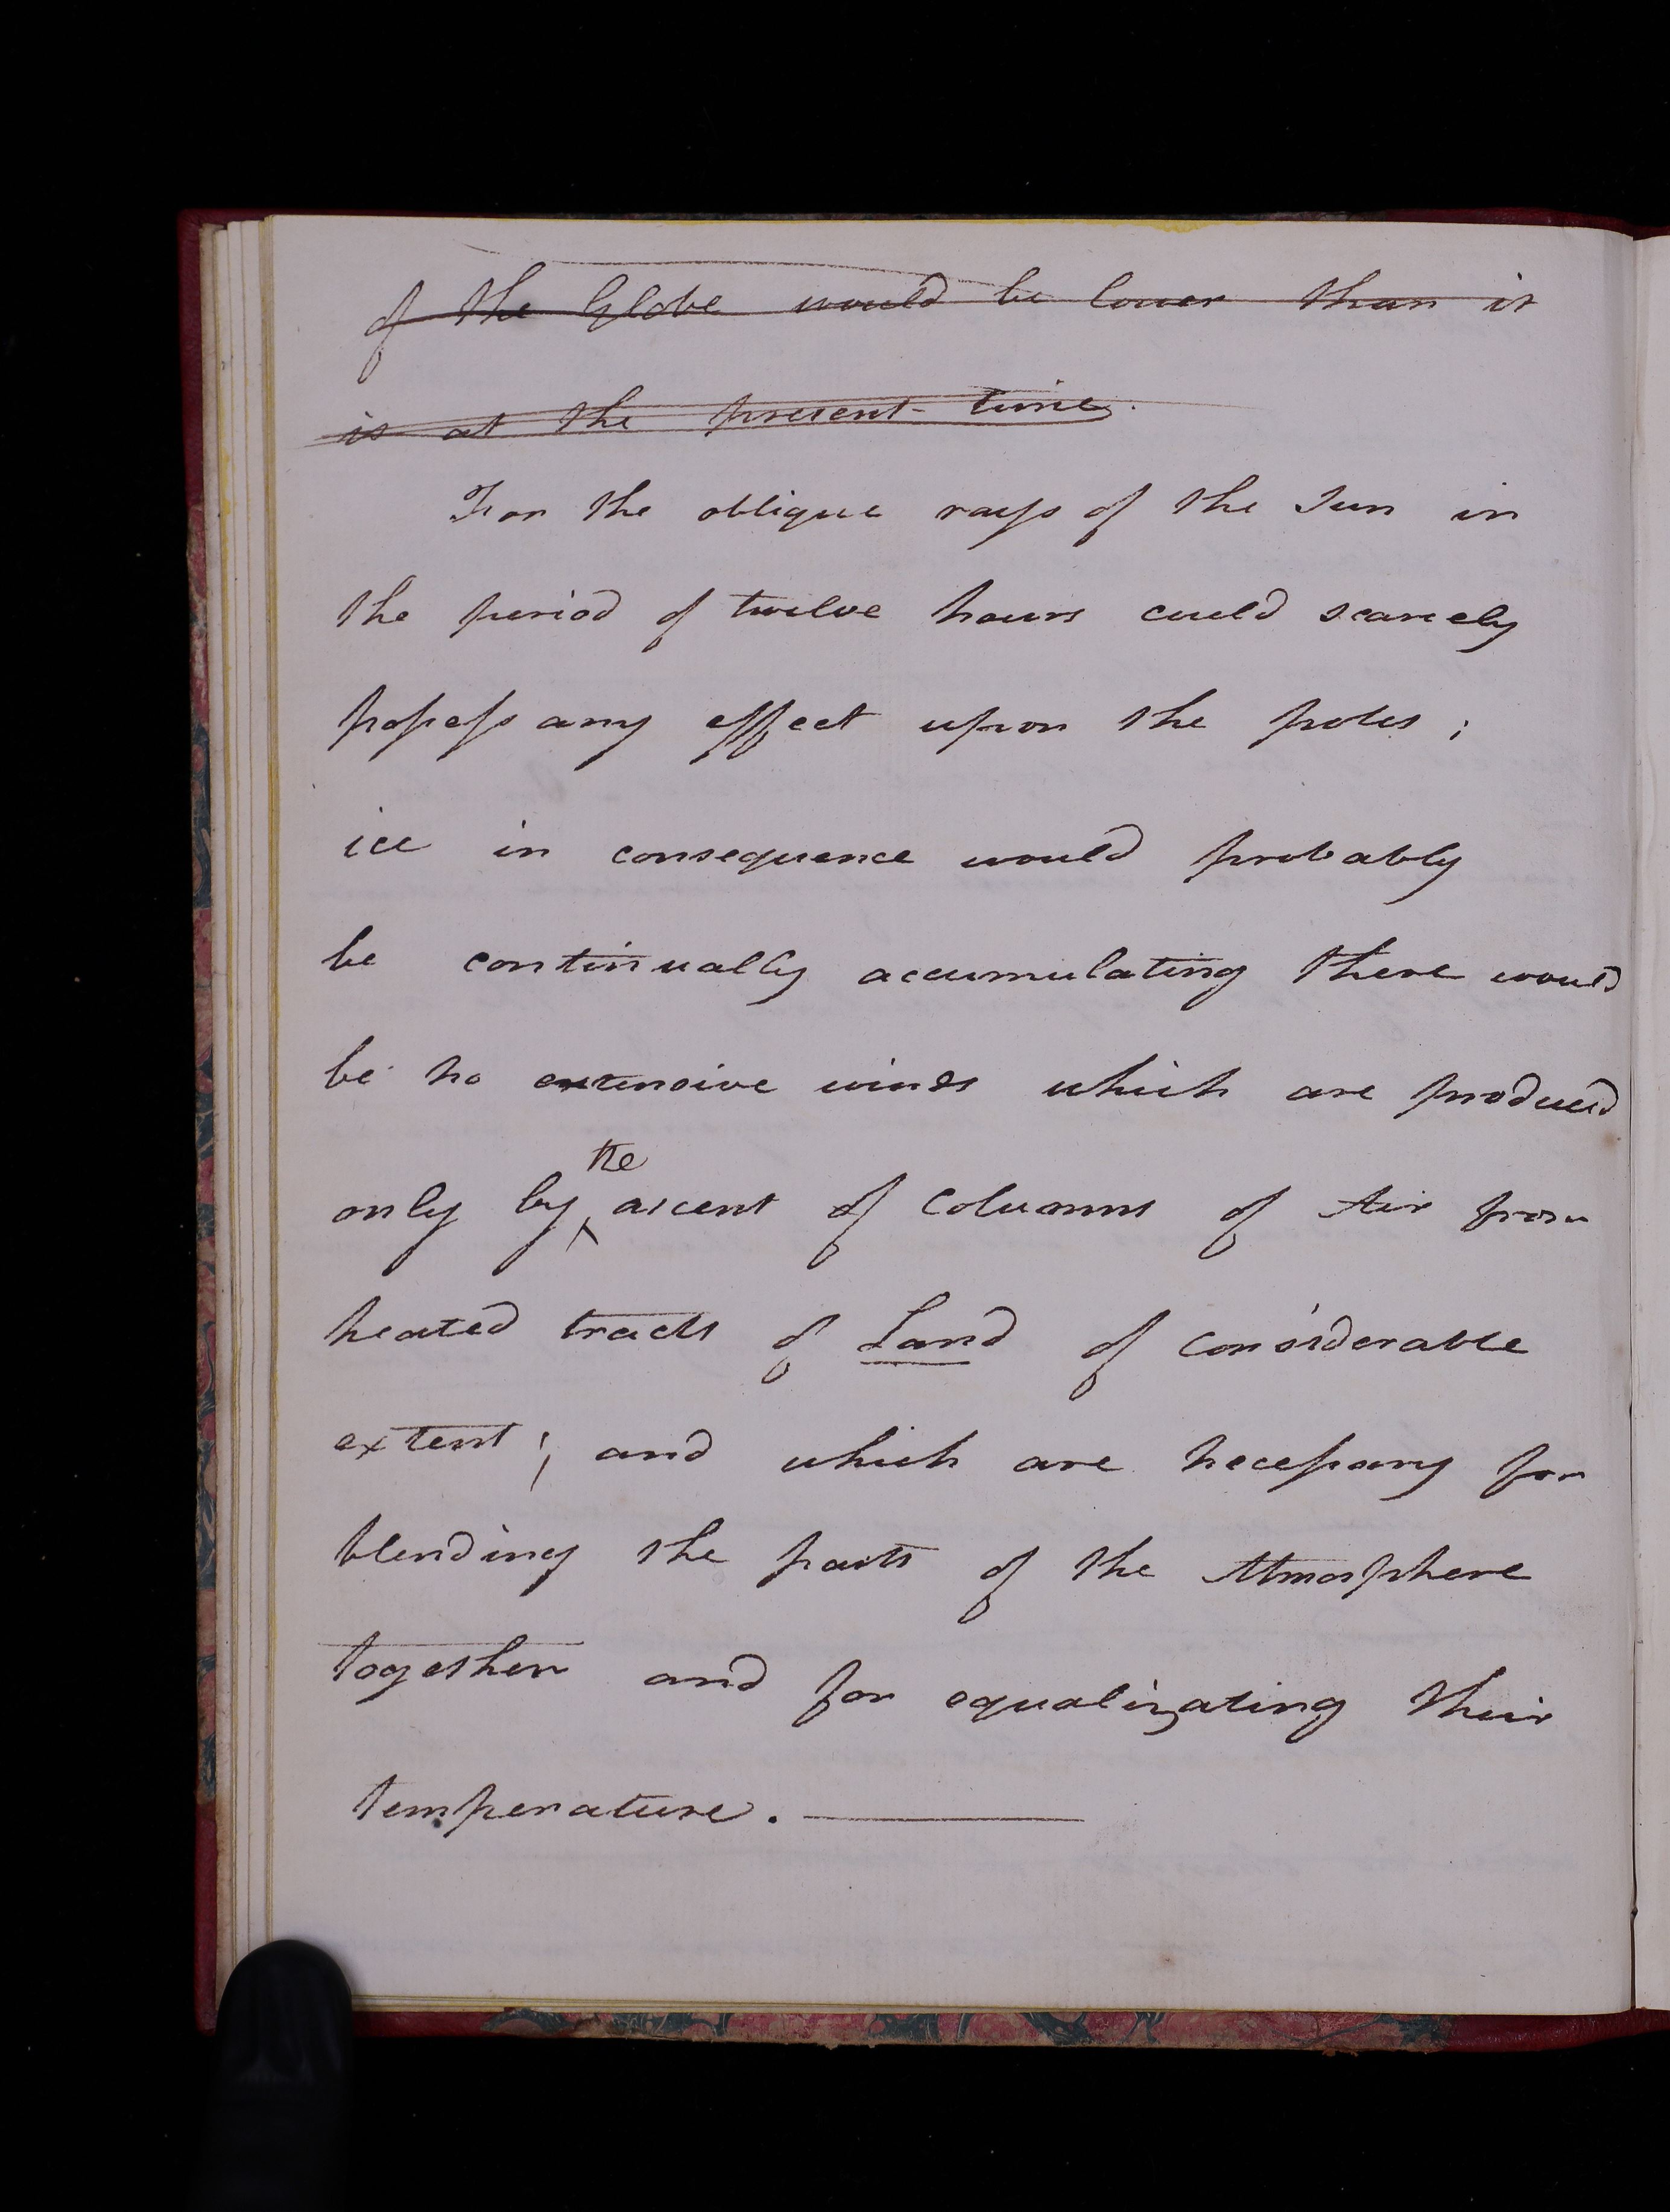 of the Globe would be lower than it
is at the present time.
For the oblique rays of the Sun in
the period of twelve hours could scarcely
possess any effect upon the poles ;
ice in consequence would probably
be continually accumulating there would
be no extensive winds which are produced
the
only by ascent of Columns of Air from
heated tracts of Land of Considerable
extent ; and which are necessary for
blending the parts of the Atmosphere
together and for equalizating their
temperature.